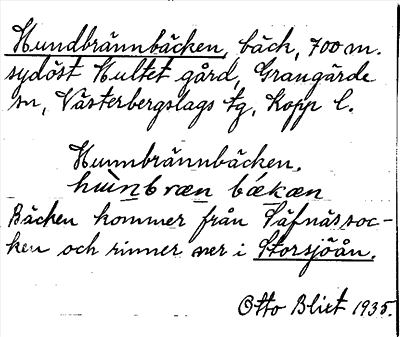 Hundbrännbäcken, bäck, 700 m.
sydöst Hultet gård, Grangärde
sn, Västerbergslags tg, Kopp l.
Hunnbrännbäcken,
hùnbræn bǽkæn
Bäcken kommer från Säfnäs soc-
ken och rinner ner i Storsjöån.
Otto Blixt 1935.